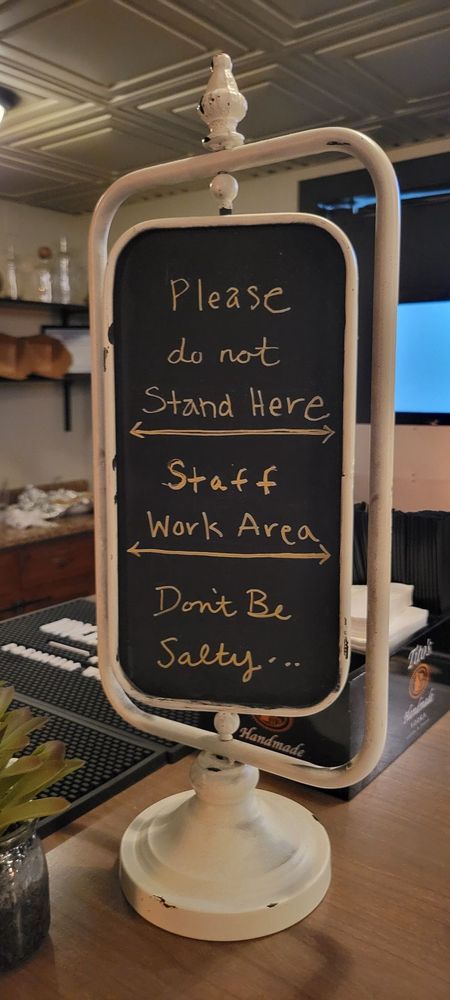 Please
do not
Stand Here
Staff
Work Area
Don't Be
Salty...
Tito's
Handmade
VODKA
Handmade